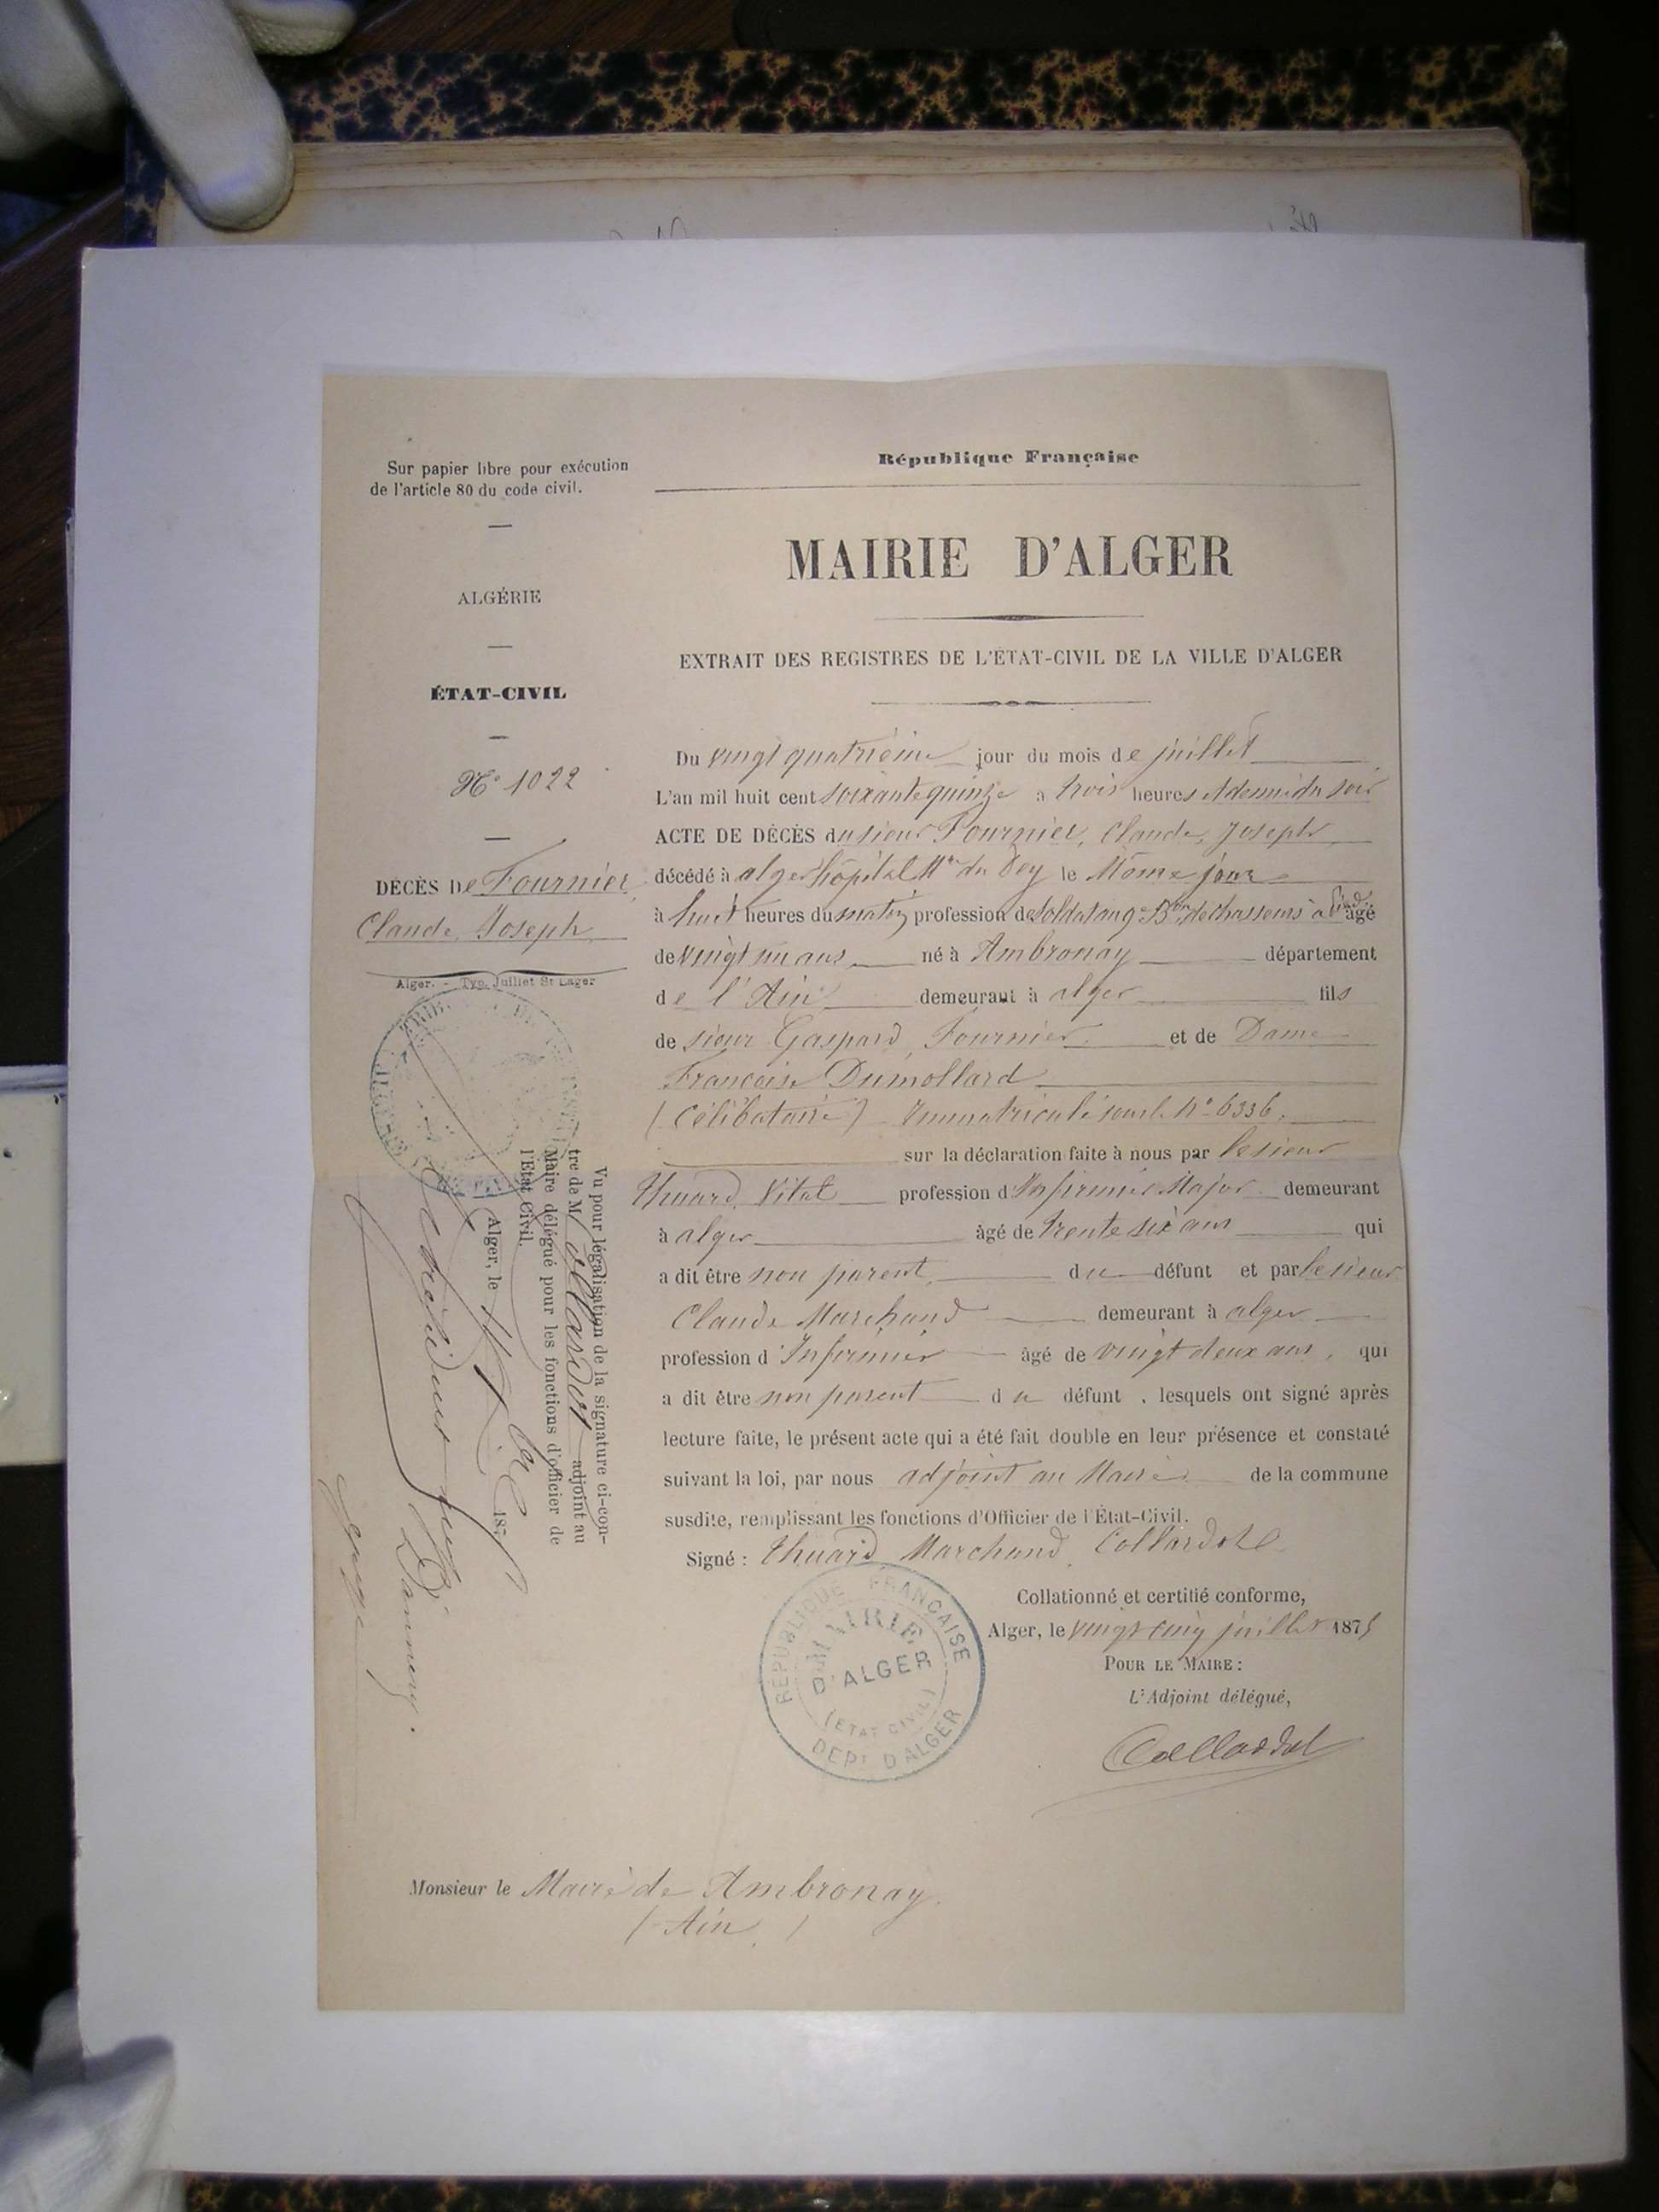 Sur papier libre pour exécution
de l'article 80 du code civil.
ALGÉRIE
ÉTAT-CIVIL
N° 1022
DÉCÈS De Fournier
Claude Joseph
Alger. - Typ. Juillet St Lager
République Française
MAIRIE D'ALGER
EXTRAIT DES REGISTRES DE L'ÉTAT-CIVIL DE LA VILLE D'ALGER
Du vingt quatrième jour du mois de juillet
L'an mil huit cent soixante quinze à trois heures et demie du soir
ACTE DE DÉCÈS du sieur Fournier, Claude, Joseph
décédé à alger hôpital Mre du Dey le Même jour
à huit heures du matin profession de Soldat au 9e Bon de chasseurs à pied âgé
de vingt un ans né à Ambronay département
de l'Ain demeurant à alger fils
de sieur Gaspard Fournier et de Dame
Françoise Dumollard
(Célibataire) Immatriculé sous le N° 6336.
sur la déclaration faite à nous par le sieur
Thuard, Vital profession d'Infirmier Major demeurant
à alger âgé de trente six ans qui
a dit être non parent du défunt et par le sieur
Claude Marchand demeurant à alger
profession d'Infirmier âgé de vingt deux ans, qui
a dit être non parent du défunt, lesquels ont signé après
lecture faite, le présent acte qui a été fait double en leur présence et constaté
suivant la loi, par nous adjoint au Maire de la commune
susdite, remplissant les fonctions d'Officier de l'État-Civil.
Signé : Thuard Marchand Collardot
Collationné et certifié conforme,
Alger, le vingt cinq juillet 1875
POUR LE MAIRE :
L'Adjoint délégué,
Collardot
RÉPUBLIQUE FRANÇAISE
MAIRIE
D'ALGER
(ETAT CIVIL)
DEPt D'ALGER
Vu pour légalisation de la signature ci-con-
tre de M Collardot adjoint au
Maire délégué pour les fonctions d'officier de
l'État Civil.
Alger, le 187
Monsieur le Maire de Ambronay
(Ain)